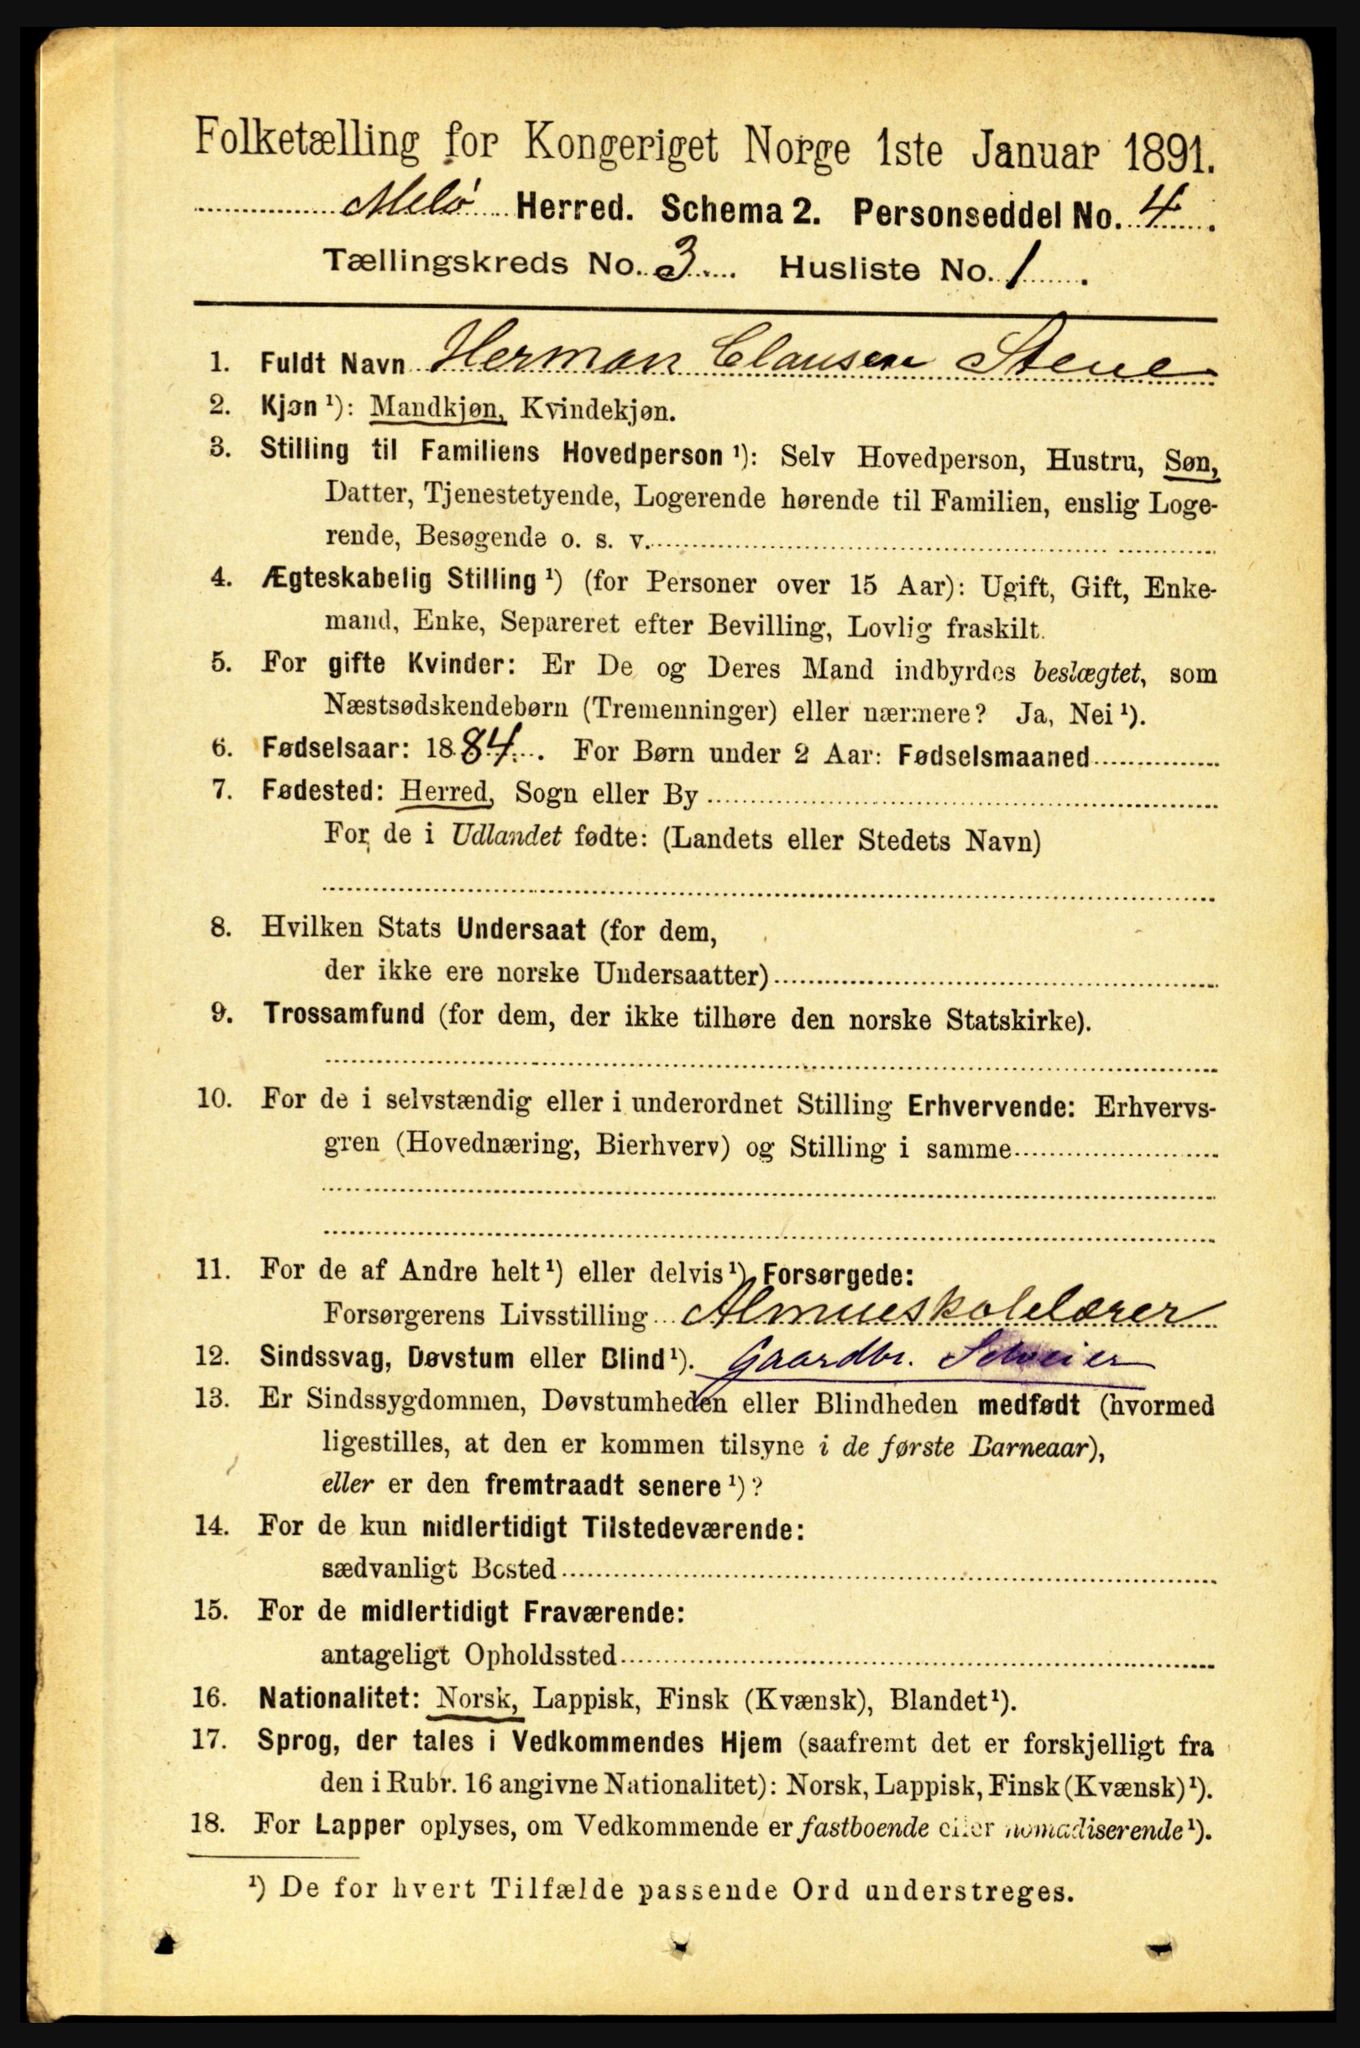 Folketælling for Kongeriget Norge 1ste Januar 1891.
Melø Herred. Schema 2. Personseddel No. 4.
Tællingskreds No. 3. Husliste No. 1.
1. Fuldt Navn Herman Clausen Stene
2. Kjøn ¹): Mandkjøn, Kvindekjøn.
3. Stilling til Familiens Hovedperson ¹): Selv Hovedperson, Hustru, Søn,
Datter, Tjenestetyende, Logerende hørende til Familien, enslig Loge-
rende, Besøgende o. s. v.
4. Ægteskabelig Stilling ¹) (for Personer over 15 Aar): Ugift, Gift, Enke-
mand, Enke, Separeret efter Bevilling, Lovlig fraskilt.
5. For gifte Kvinder: Er De og Deres Mand indbyrdes beslægtet, som
Næstsødskendebørn (Tremenninger) eller nærmere? Ja, Nei ¹).
6. Fødselsaar: 1884. For Børn under 2 Aar: Fødselsmaaned
7. Fødested: Herred, Sogn eller By
For de i Udlandet fødte: (Landets eller Stedets Navn)
8. Hvilken Stats Undersaat (for dem,
der ikke ere norske Undersaatter)
9. Trossamfund (for dem, der ikke tilhøre den norske Statskirke).
10. For de i selvstændig eller i underordnet Stilling Erhvervende: Erhvervs-
gren (Hovednæring, Bierhverv) og Stilling i samme
11. For de af Andre helt ¹) eller delvis ¹) Forsørgede:
Forsørgerens Livsstilling Almueskolelærer
12. Sindssvag, Døvstum eller Blind ¹). Gaardbr. Selveier
13. Er Sindssygdommen, Døvstumheden eller Blindheden medfødt (hvormed
ligestilles, at den er kommen tilsyne i de første Barneaar),
eller er den fremtraadt senere ¹)?
14. For de kun midlertidigt Tilstedeværende:
sædvanligt Bosted
15. For de midlertidigt Fraværende:
antageligt Opholdssted
16. Nationalitet: Norsk, Lappisk, Finsk (Kvænsk), Blandet ¹).
17. Sprog, der tales i Vedkommendes Hjem (saafremt det er forskjelligt fra
den i Rubr. 16 angivne Nationalitet): Norsk, Lappisk, Finsk (Kvænsk) ¹).
18. For Lapper oplyses, om Vedkommende er fastboende eller nomadiserende ¹).
¹) De for hvert Tilfælde passende Ord understreges.